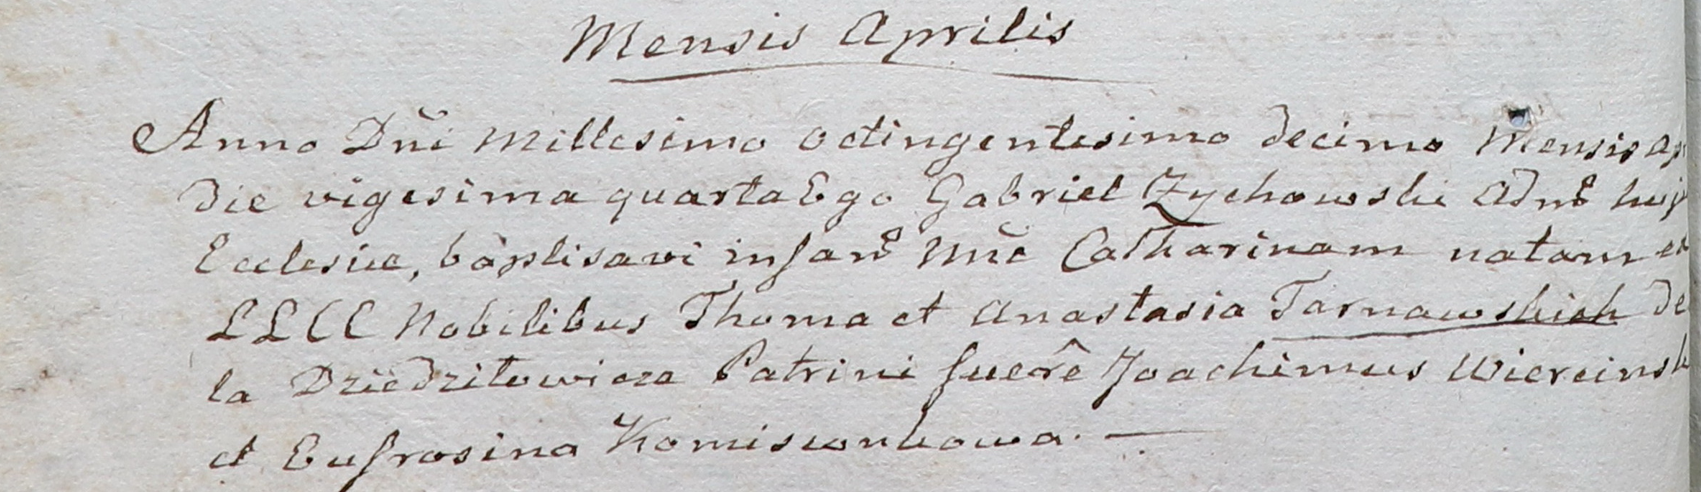 Mensis Aprilis
Anno Dñi Millesimo octingentesimo decimo Mensis Ap
Die vigesima quarta Ego Gabriel Zychowski Admr huj
Ecclesiæ, baptisavi infan nñe Catharinam natam ex
LLCC Nobilibus Thoma et Anastasia Tarnawskich De
la Dziedziłowicze Patrini fuerẽ Joachimus Wiercinsk
et Eufrosina